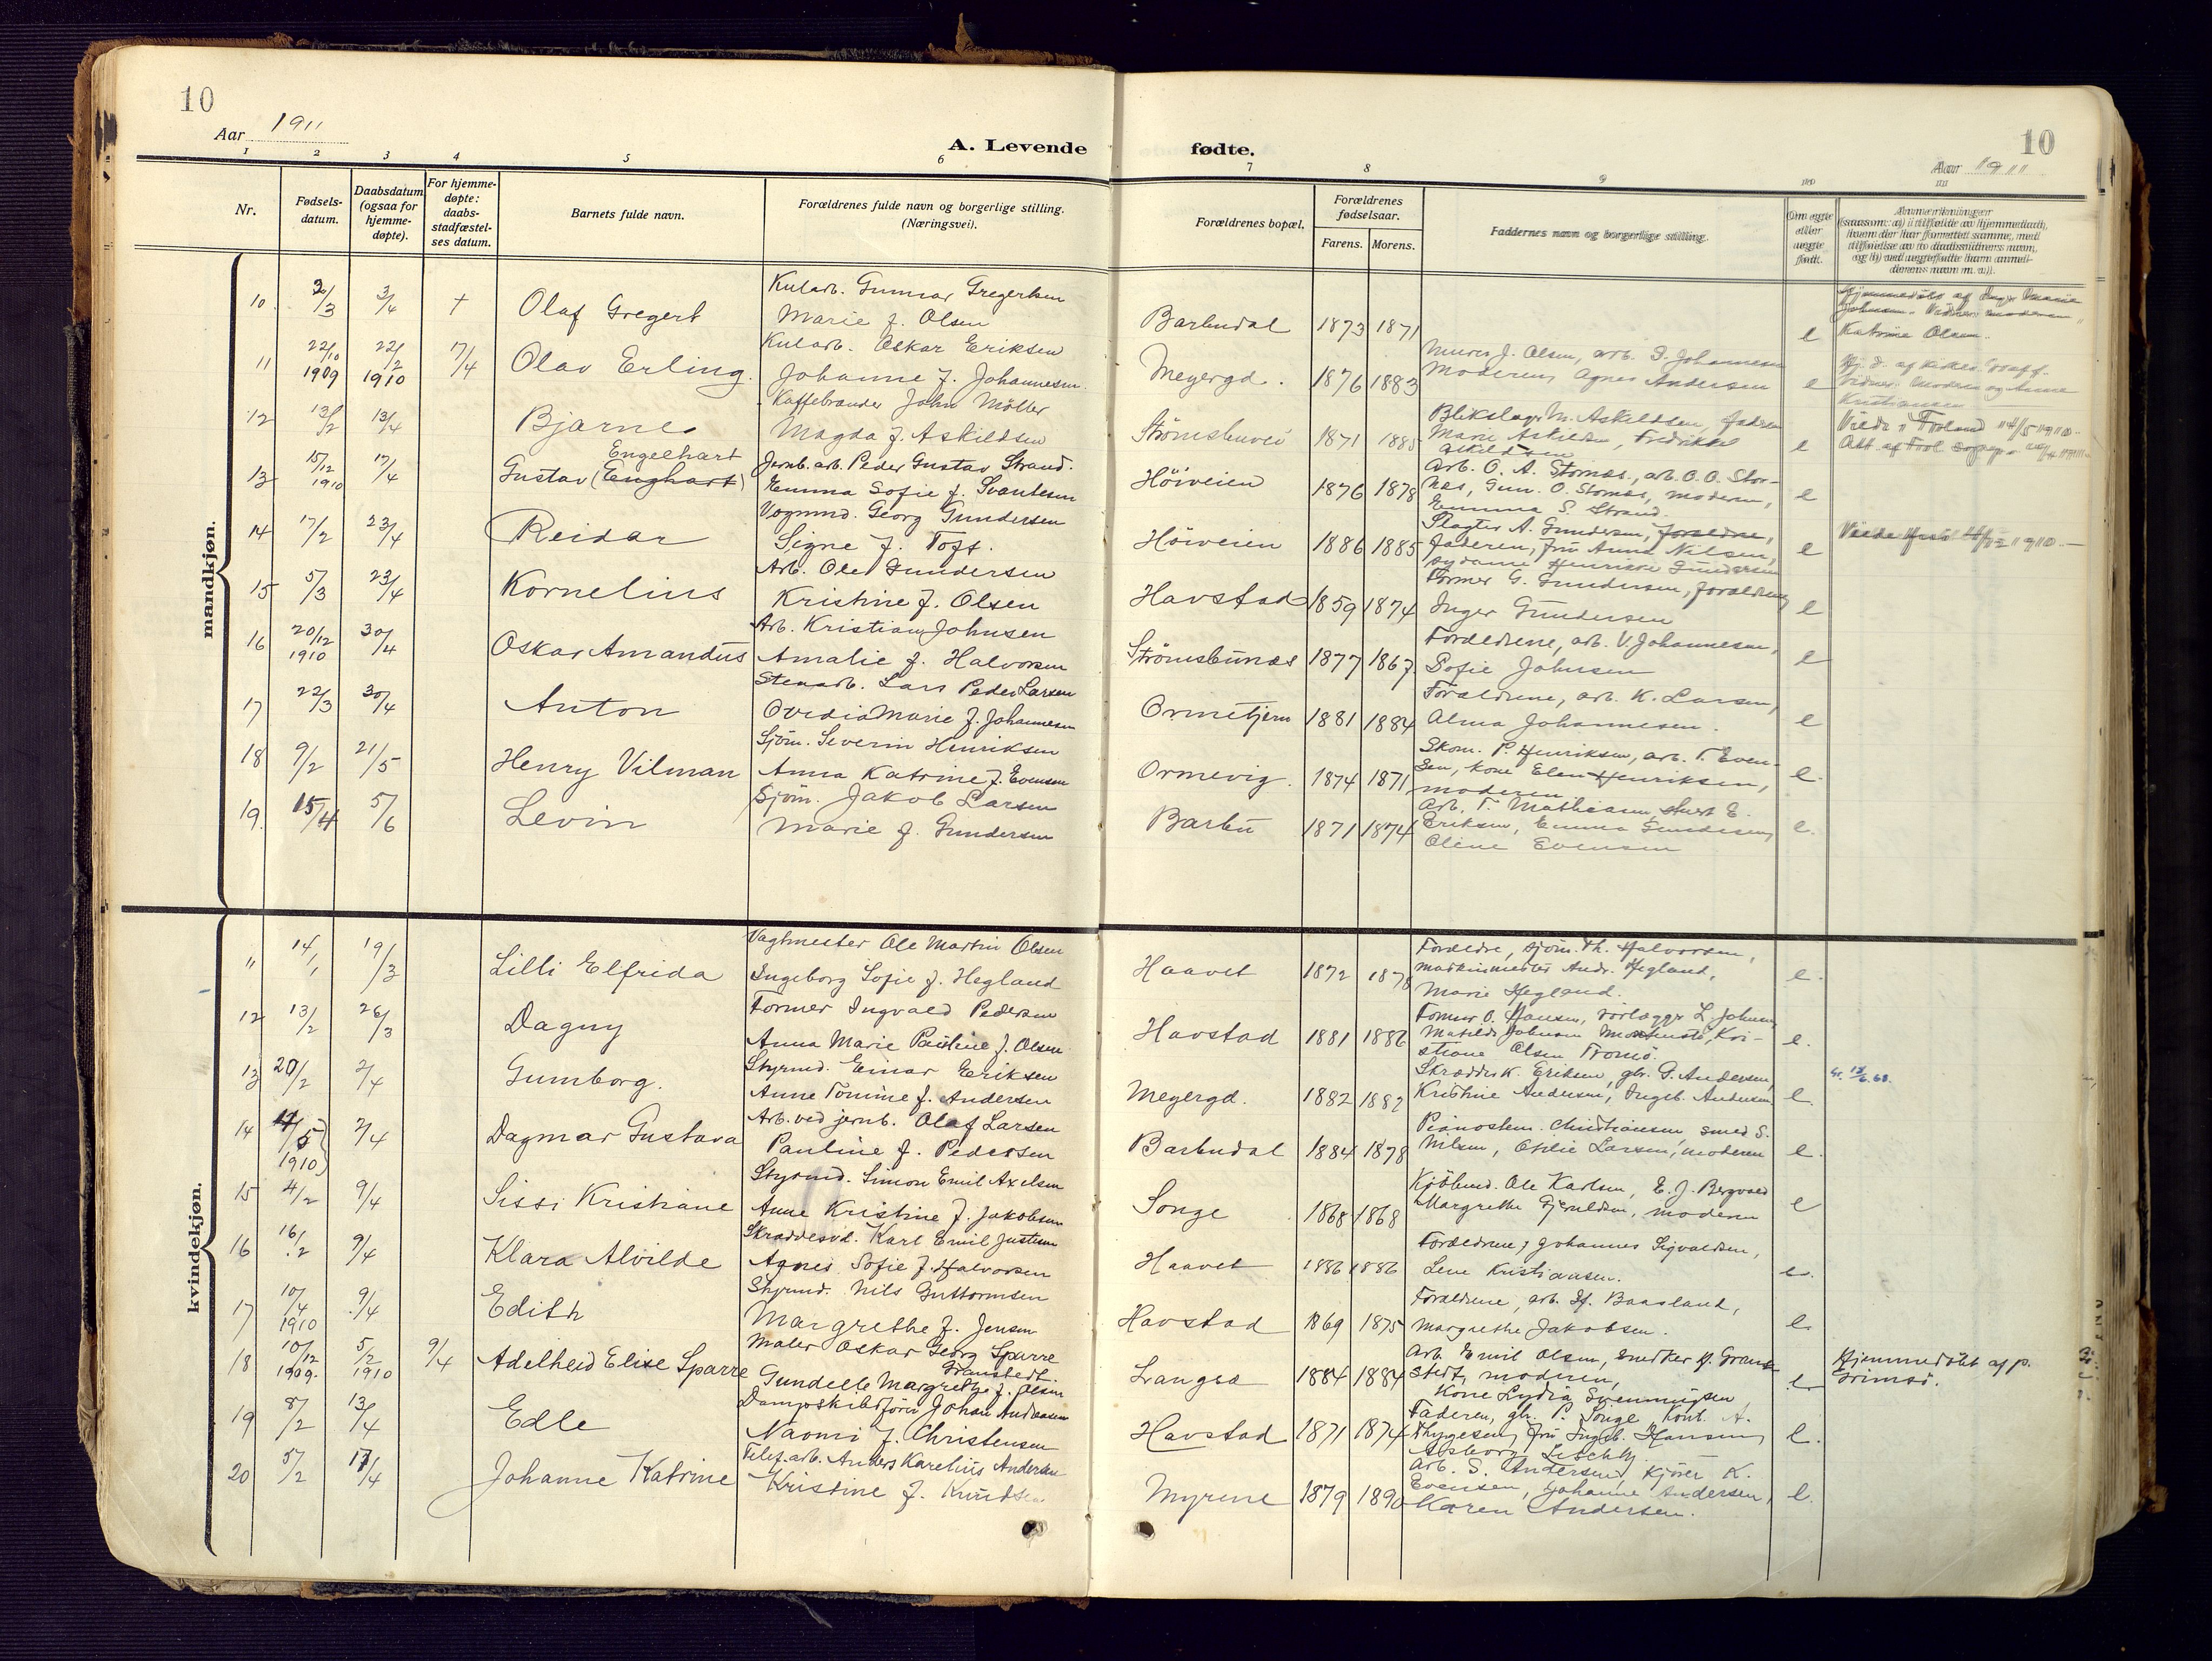 10
Aar 1911
A. Levende
fødte.
10
Aar 1911
1 2 3 4 5 6 7 8 9 10 11
Nr.
Fødsels-
datum.
Daabsdatum
(ogsaa for
hjemme-
døpte).
For hjemme-
døpte:
daabs-
stadfæstel-
ses datum.
Barnets fulde navn.
Forældrenes fulde navn og borgerlige stilling.
(Næringsvei).
Forældrenes bopæl.
Forældrenes
fødselsaar.
Farens. Morens.
Faddernes navn og borgerlige stilling.
Om ægte
eller
uægte
født.
Anmerkninger
(saasom: a) i tilfælde av hjemmedaab,
hvem der har forrettet samme, med
tilføielse av to daabsvidners navn,
og b) ved uegtefødte barn anmel-
derens navn m. v.).
mandkjøn.
10 2/3 3/4 + Olaf Gregert
Kularb. Gunnar Gregertsen
Marie f. Olsen
Barbudal 1873 1871 e
Hjemmedöbt af Inga Marie
Johnsen. Vidner: moderen,
Katrine Olsen.
11 22/10 1909 22/2 1910 17/4 Olav Erling.
Kularb. Oskar Eriksen
Johanne f. Johannesen.
Meyergd. 1876 1883
Murer J. Olsen, arb. I. Johannesen
Moderen, Agnes Andersen e
Vidner: Moderen og Anne
Kristiansen
12 13/2 13/4 Bjarne
Kaffebrænder John Möller
Magda f. Askildsen
Strömsbuvei 1871 1885
Blikslager M. Askildsen, faderen
Marie Askildsen, Fredrikke
Askildsen e
Viede i Froland 14/5 1910.
13 15/12 1910 17/4 Gustav (Enghart) Engelhart
Jernb. arb. Peder Gustav Strand.
Emma Sofie f. Svantesen
Höiveien 1876 1878
Arb. O. A. Stornæs, arb. O. O. Stor-
næs, Gun. O. Stornæs, moderen,
Emma S. Strand. e
14 17/2 23/4 Reidar
Vognmd. Georg Gundersen
Signe f. Toft.
Höiveien 1886 1885
Slagter A. Gundersen, forældrene,
Faderen, fru Anna Nilsen,
sydame Henrikke Gundersen e
15 5/3 23/4 Kornelius
Arb. Ole Gundersen
Kristine f. Olsen
Havstad 1859 1874
Former G. Gundersen, forældrene,
Inger Gundersen e
16 20/12 1910 30/4 Oskar Amandus
Arb. Kristian Johnsen
Amalie f. Halvorsen
Strömsbunæs 1877 1867
Forældrene, arb. V. Johannesen,
Sofie Johnsen e
17 22/3 30/4 Anton
Stenarb. Lars Peder Larsen
Ovedia Marie f. Johannesen
Ormetjern 1881 1884
Forældrene, arb. K. Larsen,
Alma Johannesen. e
18 9/2 21/5 Henry Vilman
Sjöm. Severin Henriksen
Anna Katrine f. Evensen
Ormevig. 1874 1871
Skom. P. Henriksen, arb. T. Even-
sen, kone Elen Henriksen,
moderen e.
19. 15/4 5/6 Levin
Sjöm. Jakob Larsen
Marie f. Gundersen
Barbu 1871 1874
Arb. T. Mathiasen, E.
Eriksen, Emma Gundersen,
Oline Evensen e.
kvindekjøn.
11 14/1 19/3 Lilli Elfrida
Vagtmester Ole Martin Olsen
Ingeborg Sofie f. Hegland
Haavet 1872 1878
Forældre, sjöm. Th. Halvorsen,
maskinmester Andr. Hegland,
Marie Hegland. e.
12 13/2 26/3 Dagny
Former Ingvald Pedersen
Anna Marie Pauline f. Olsen
Havstad 1881 1886
Former O. Hansen, rörlægger L. Johnsen
Matilde Johnsen Kri-
stiane Olsen Tromö. e.
13 20/2 2/4 Gumborg.
Styrmd. Einar Eriksen
Anne Tomine f. Andersen
Meyergd. 1882 1882
Skrædder K. Eriksen, gbr. G. Andersen,
Kristine Andersen, Ingeb. Andersen. e.
14 17/5 1910 2/4 Dagmar Gustava
Arb. ved jernb. Olaf Larsen
Pauline f. Pedersen
Barbudal 1884 1878
Pianostem. Christiansen, smed S.
Nilsen, Otilie Larsen, moderen e.
15 4/2 9/4 Sissi Kristiane
Styrmd. Simon Emil Axelsen
Anne Kristine f. Jakobsen
Songe 1868 1868
Kjöbmd. Ole Karlsen, E. J. Bergvald
Margrethe Gjeruldsen, moderen e
16 16/2 9/4 Klara Alvilde
Skræddersvd. Karl Emil Justesen
Agnes Sofie f. Halvorsen
Haavet 1886 1886
Forældrene, Johannes Sigvaldsen,
Lene Kristiansen. e.
17 10/4 1910 9/4 Edith
Styrmd. Nils Guttormsen
Margrethe f. Jensen
Havstad 1869 1875
Forældrene, arb. H. Baasland,
Margrethe Jakobsen. e.
18 10/12 1909. 5/2 1910 9/4 Adelheid Elise Sparre
Maler Oskar Georg Sparre
Granstedt.
Gundelle Margrethe f. Olsen
Langsæ 1884 1884
Arb. Emil Olsen, snedker H. Gran-
stedt, moderen,
Kone Lydia Svenningsen e.
Hjemmedöbt af p.
Grimsö.
19 8/2 13/4 Edle
Dampskibsförer Johan Andreasen
Naomi f. Christensen
Havstad 1871 1874
Faderen, gbr. P. Songe, Kont. A.
Thygesen, fru Ingeb. Hansen, e.
20 5/2 17/4 Johanne Katrine
Telef. arb. Anders Karelius Andersen
Kristine f. Knudsen
Myrene 1879 1890
Arb. S. Andersen, kjörer K.
Evensen, Johanne Andersen,
Karen Andersen. e.